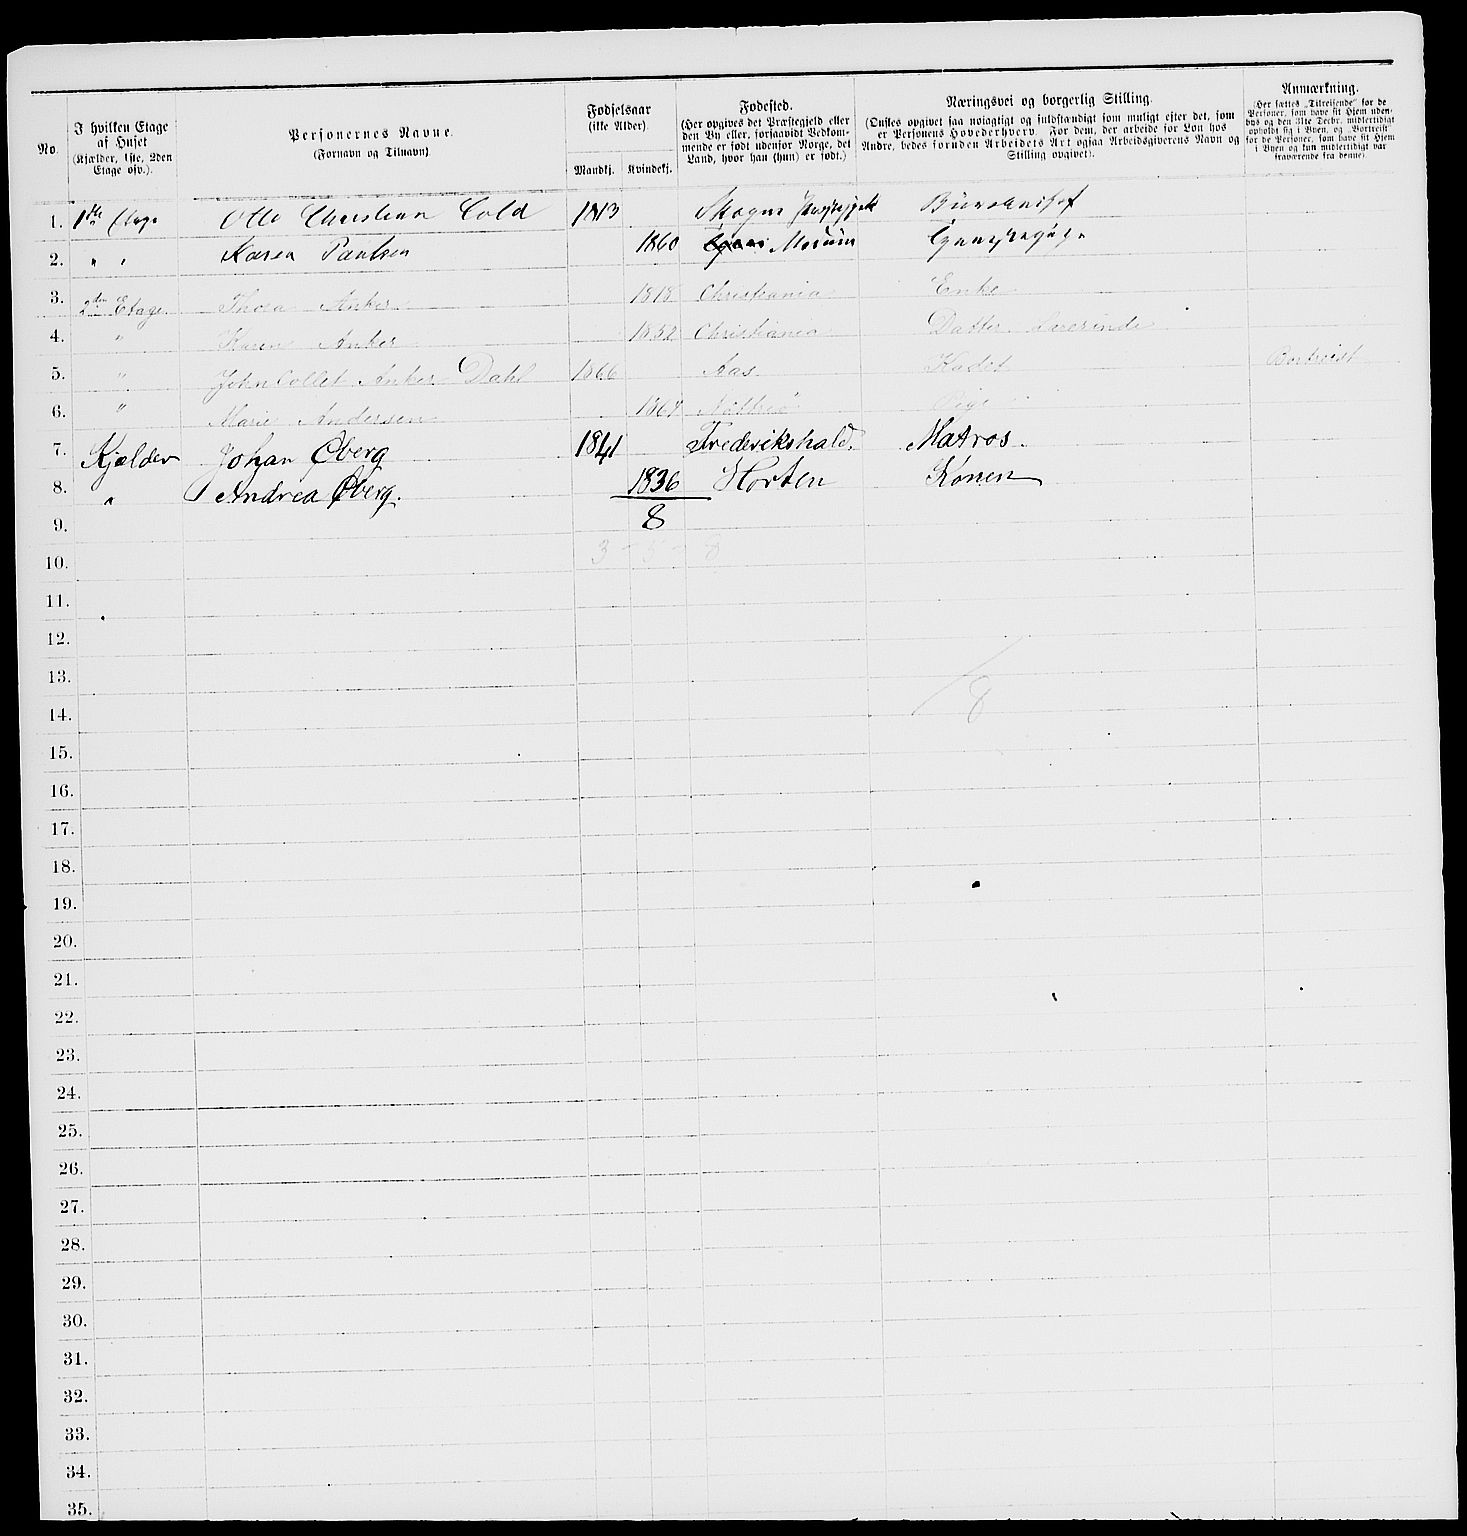 No.
I hvilken Etage af Huset (Kjælder, 1ste, 2den Etage osv.).
Personernes Navne. (Fornavn og Tilnavn).
Fødselsaar (ikke Alder).
Mandkj. Kvindekj.
Fødested. (Her opgives det Præstegjeld eller den By eller, forsaavidt Vedkommende er født udenfor Norge, det Land, hvor han (hun) er født.)
Næringsvei og borgerlig Stilling. (Ønskes opgivet saa nøiagtigt og fuldstændigt som muligt efter det, som er Personens Hovederhverv. For dem, der arbeide for Løn hos Andre, bedes foruden Arbeidets Art ogsaa Arbeidsgiverens Navn og Stilling opgivet).
Anmærkning. (Her sættes „Tilreisende“ for de Personer, som have sit Hjem udenbys og den 31te Decbr. midlertidigt opholdt sig i Byen, og „Bortreist“ for de Personer, som have sit Hjem i Byen og kun midlertidigt var fraværende fra denne)
1. 1ste Etage Otto Christian Cold 1813 Skoger Præstegjeld Bureauchef
2. " " Karen Paulsen 1860 Modum
3. 2den Etage Thora Anker 1818 Christiania Enke
4. " Karen Anker 1852 Christiania Datter. Lærerinde
5. " John Collet Anker Dahl 1866 Aas Kadet Bortreist
6. " Marie Andersen 1864 Nøtterø Pige
7. Kjælder Johan Øberg 1841 Frederikshald. Matros.
8. " Andrea Øberg. 1836 Horten Konen
9. 8
10. 3 - 5 - 8
11.
12.
13.
14. 8
15.
16.
17.
18.
19.
20.
21.
22.
23.
24.
25.
26.
27.
28.
29.
30.
31.
32.
33.
34.
35.